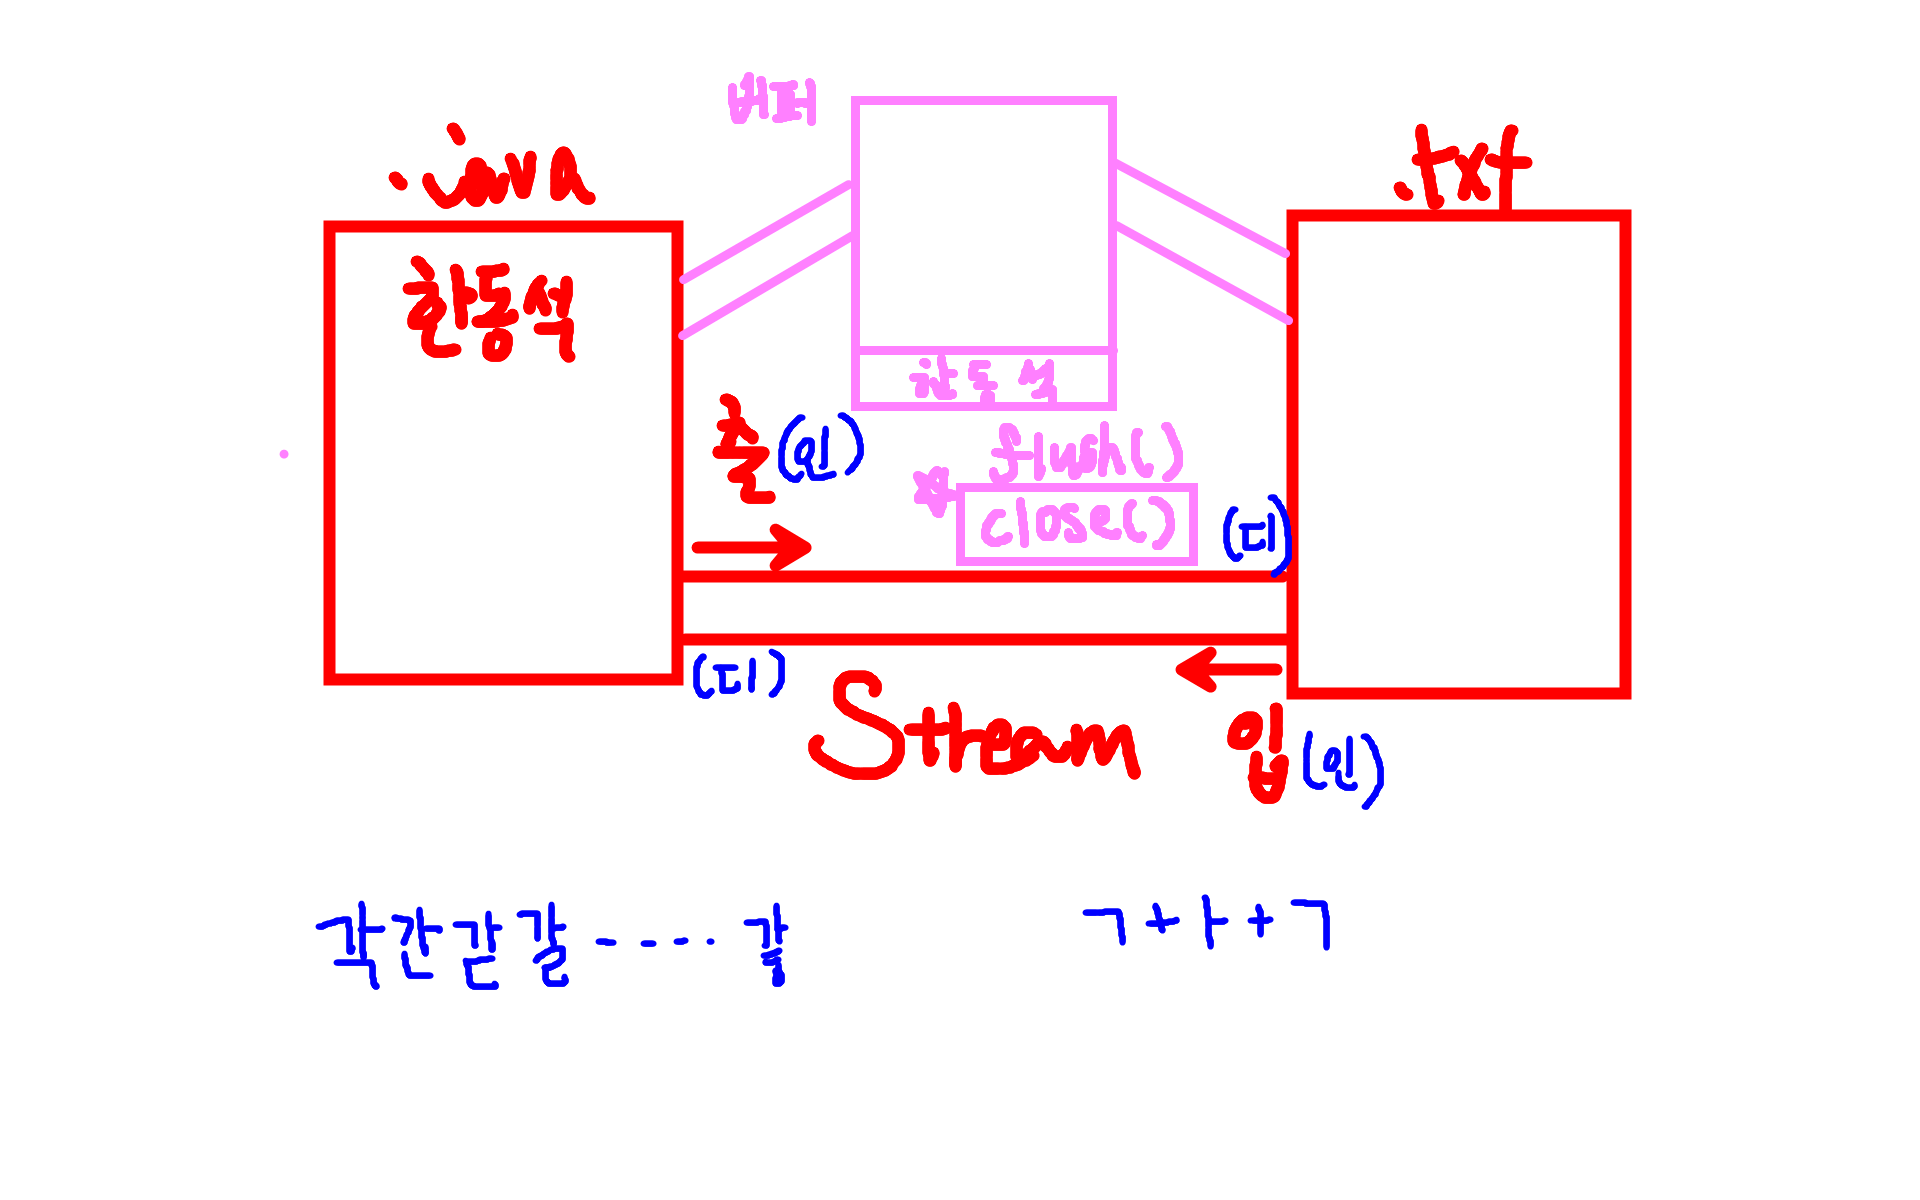 버퍼
.java
.txt
한동석
한동석
출 (인)
flush()
close()
(디)
(디)
Stream
입 (인)
각 간 갇 갈 ----· 갛
ㄱ + ㅏ + ㄱ